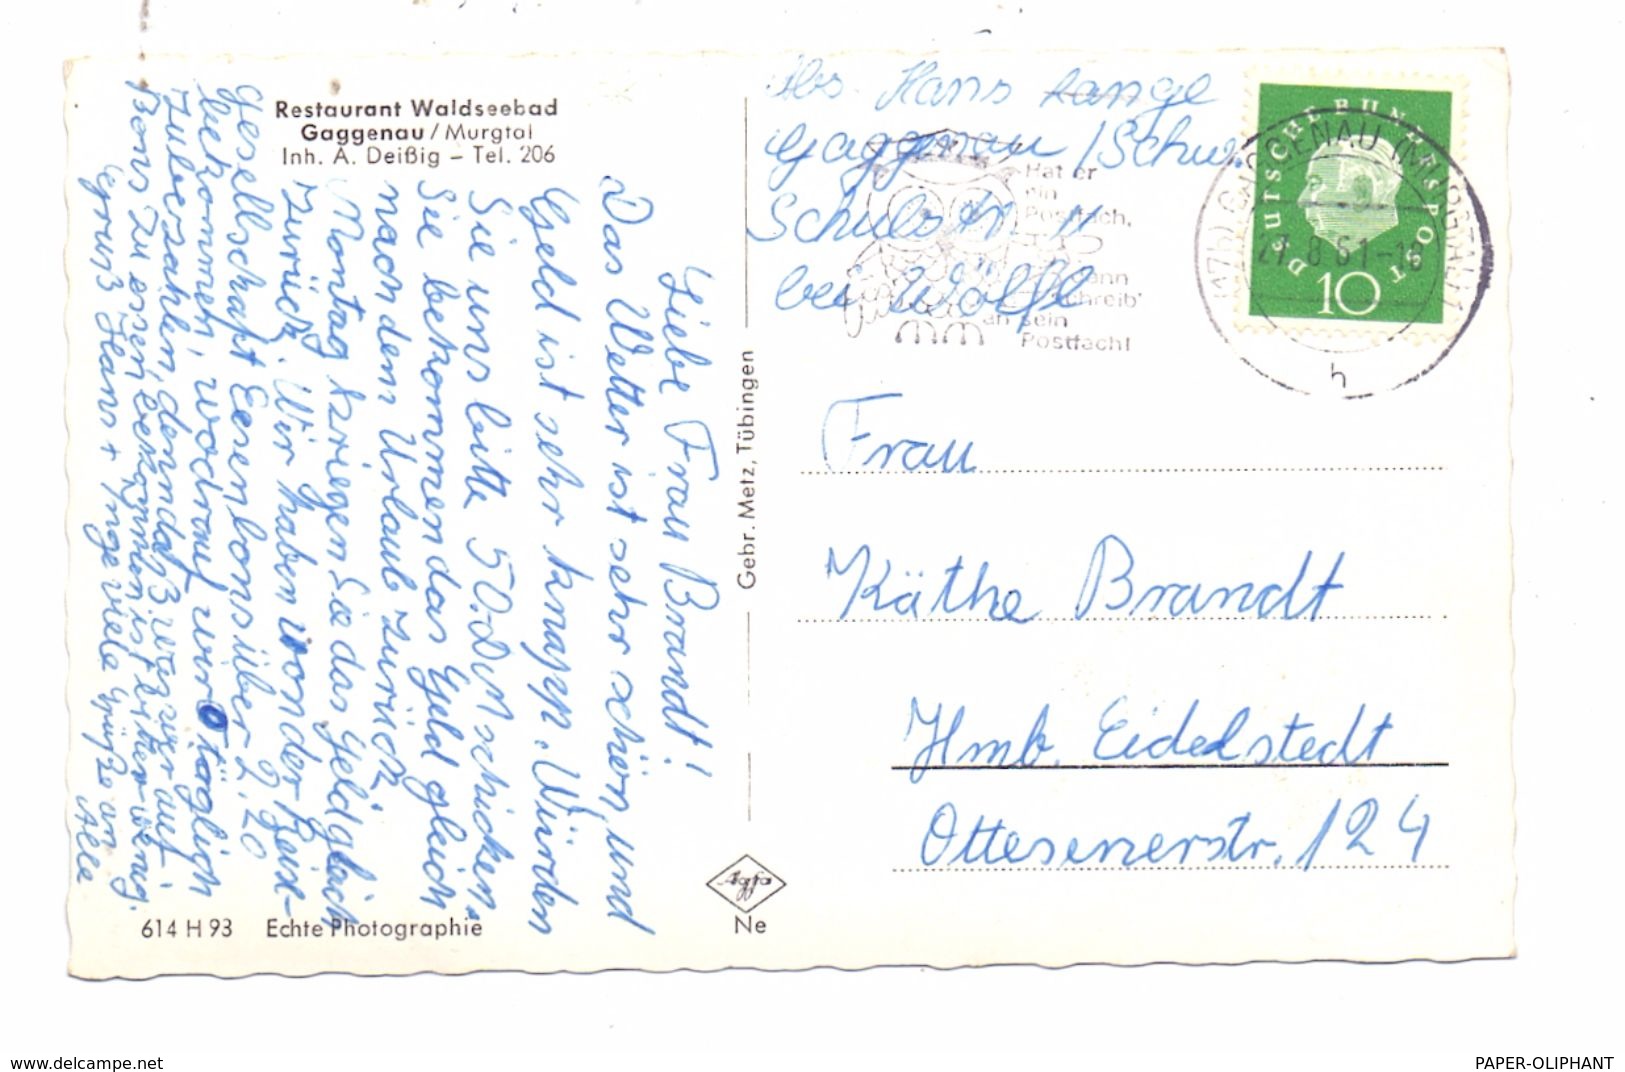 Restaurant Waldseebad
Gaggenau / Murgtal
Inh. A. Deißig – Tel. 206
Liebe Frau Brandt!
Das Wetter ist sehr schön, und
Geld ist sehr knapp. Würden
Sie uns bitte 50.DM schicken,
Sie bekommen das Geld gleich
nach dem Urlaub zurück.
Montag kriegen Sie das Geld gleich
zurück. Wir haben von der Reise-
gesellschaft Essenbons über 2,20
bekommen, worauf wir täglich
zuberzahlen, denn das
Bons zu essen bekommen ist bitter wenig.
Gruß Hans + Inge viele Grüße an
Alle
614 H 93 Echte Photographie
Gebr. Metz, Tübingen
Agfa
Ne
Abs. Hans Lange
Gaggenau / Schw.
Schulstr. 11
bei Wölfl
Hat er
ein
Postfach,
dann
schreib'
an sein
Postfach!
DEUTSCHE BUNDESPOST
10
(17b) GAGGENAU (MURGTAL) 1
27.8.61-18
h
Frau
Käthe Brandt
Hmb. Eidelstedt
Ottesenerstr. 124
www.delcampe.net
PAPER-OLIPHANT